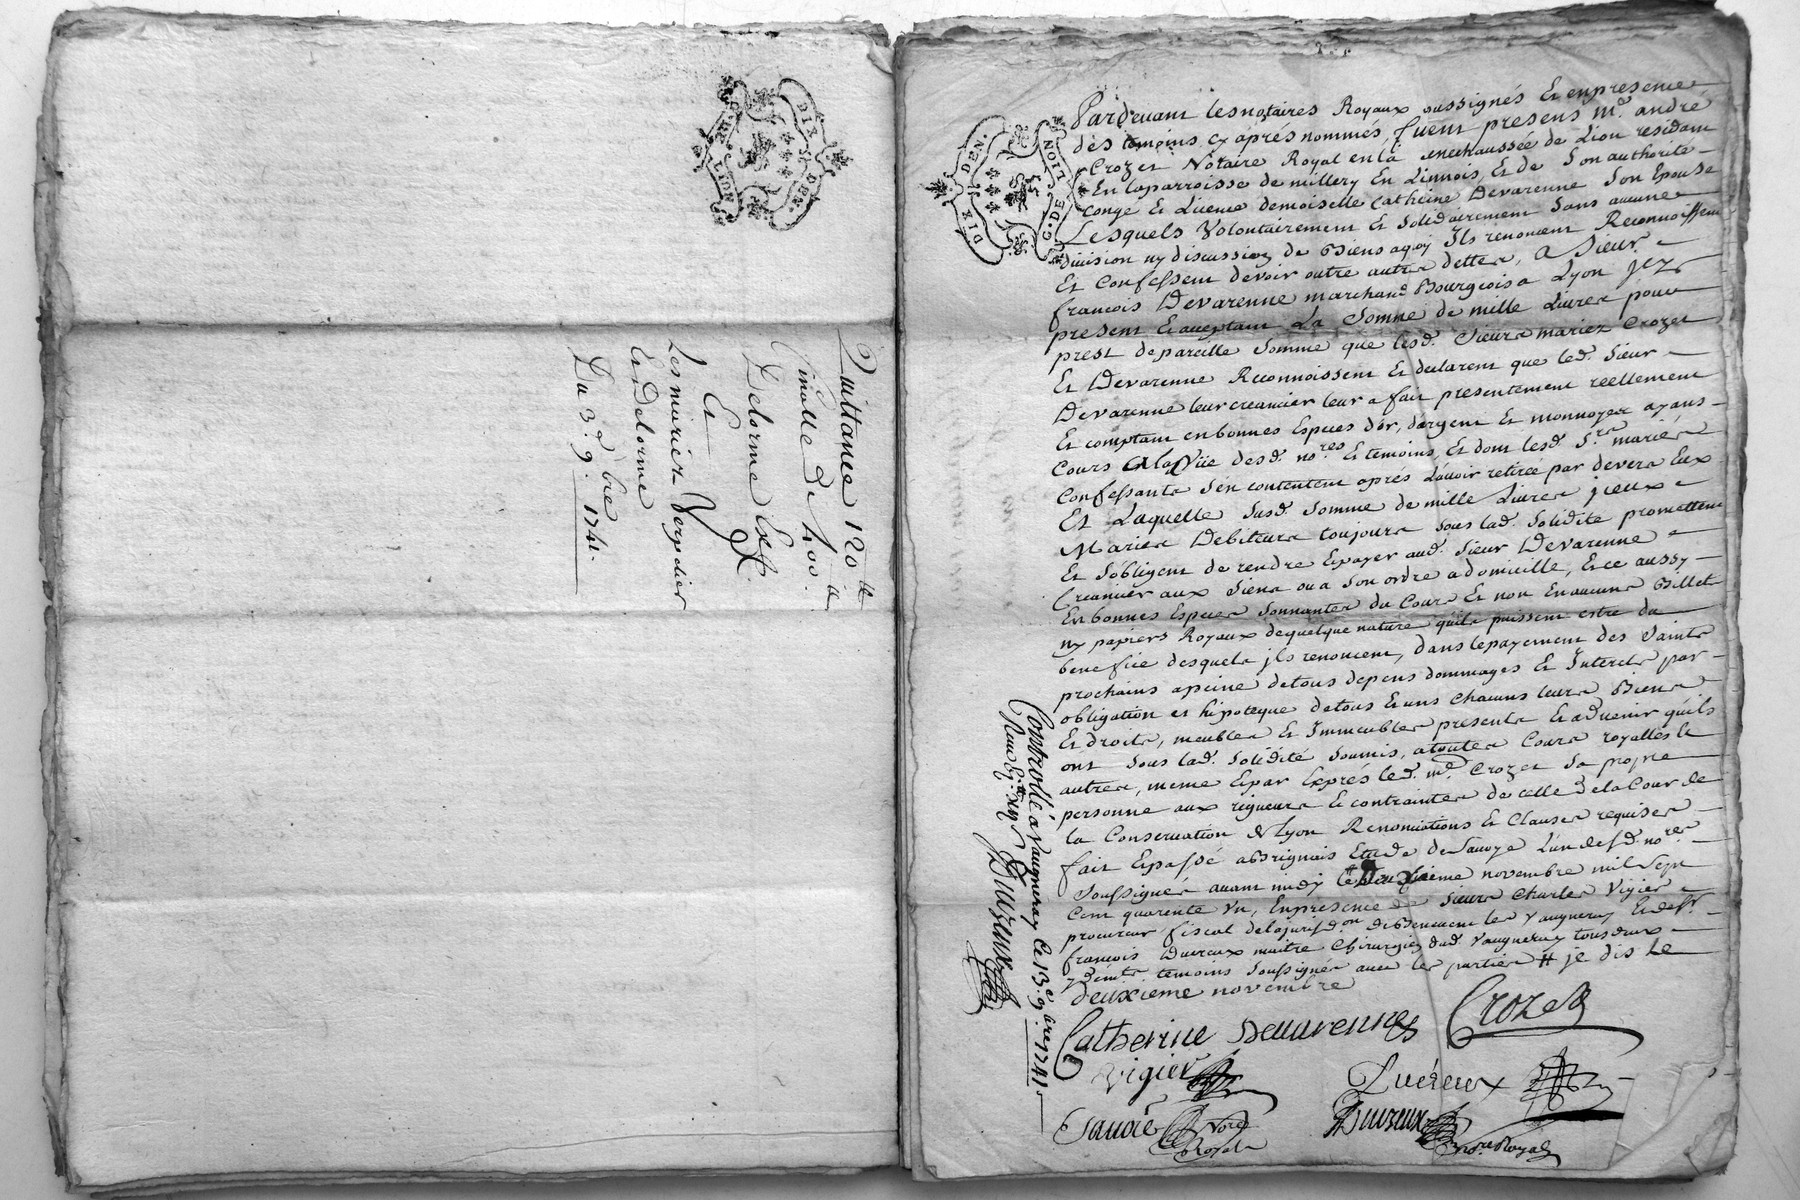 DIX DEN.
G. DE LION
Quittance 120 ᵗᵗ
finalle de 400 ᵗᵗ
Delorme
Et
Les mariez Verpdier
Et Delorme
Du 3.ᵉ 9.ᵇʳᵉ 1741.
DIX DEN.
G. DE LION
Pardevant les notaires Royaux soussignés Et en presence
des temoins cy aprés nommés, furent presens mᵉ. andré
Crozet Notaire Royal en la senechaussée de Lion residant
En la parroisse de millery En Lionnois, Et de Son authorité
congé Et Licence demoiselle Catherine Devarenne Son Epouse
Lesquels Volontairement Et Solidairement Sans aucune
division ny discussion de Biens aquoy Ils renoncent Reconnoissent
Et Confessent devoir outre autre dette, a Sieur
francois Devarenne marchand Bourgeois a Lyon Jcy
present Et acceptant La Somme de mille Livres pour
prest de pareille Somme que lesd. Sieurs mariez Crozet
Et Devarenne Reconnoissent Et declarent que led. Sieur
Devarenne leur creancier leur a fait presentement reellement
Et comptant en bonnes Especes d'or, d'argent Et monnoyes ayans
Cours a la vüe desd. noʳᵉˢ Et temoins, Et dont lesd. Sʳˢ mariés
Confessants S'en contentent aprés L'avoir retirée par devers Eux
Et Laquelle Susd. Somme de mille Livres jceux
Mariés Debiteurs toujours Sous lad. Solidité promettent
Et S'obligent de rendre Et payer aud. Sieur Devarenne
Creancier aux Siens ou a Son ordre a domicille, Et ce aussy
En bonnes Especes Sonnantes du Cours Et non En aucuns Billets
ny papiers Royaux de quelque nature qu'ils puissent estre du
benefice desquels jls renoncent, dans le payement des Saints
prochains a peine de tous depens dommages Et Interets par
obligation et hipoteque de tous Et uns chacuns leurs Biens
Et droits, meubles Et Immeubles presents Et advenir qu'ils
ont Sous lad. Solidité Soumis, a toutes Cours royalles Et
autres, meme Et par Exprés led. mᵉ Crozet Sa propre
personne aux rigueurs Et contraintes de celle de la Cour de
la Conservation de Lyon Renonciations Et Clauses requises
fait Et passé a Brignais Etude de Savoye L'un desd. noʳᵉˢ
Soussignés avant midy le Deuxieme novembre mil Sept
Cent quarente Un, En presence de Sieurs Charles Vigier
procureur fiscal de la jurisdᵒⁿ de Benevent les Vaugneray Et de Sʳ.
francois Duereux maitre Chirurgien dud. Vaugneray tous deux
temoins Soussignés avec les parties # je dis Le
deuxieme novembre
Catherine Devarennes Crozet
Vigier Duereux
Savoie Noʳᵉ Royal Duvreux Noʳᵉ Royal
Controllé a Vaugneray Le 13.ᵉ 9.ᵇʳᵉ 1741